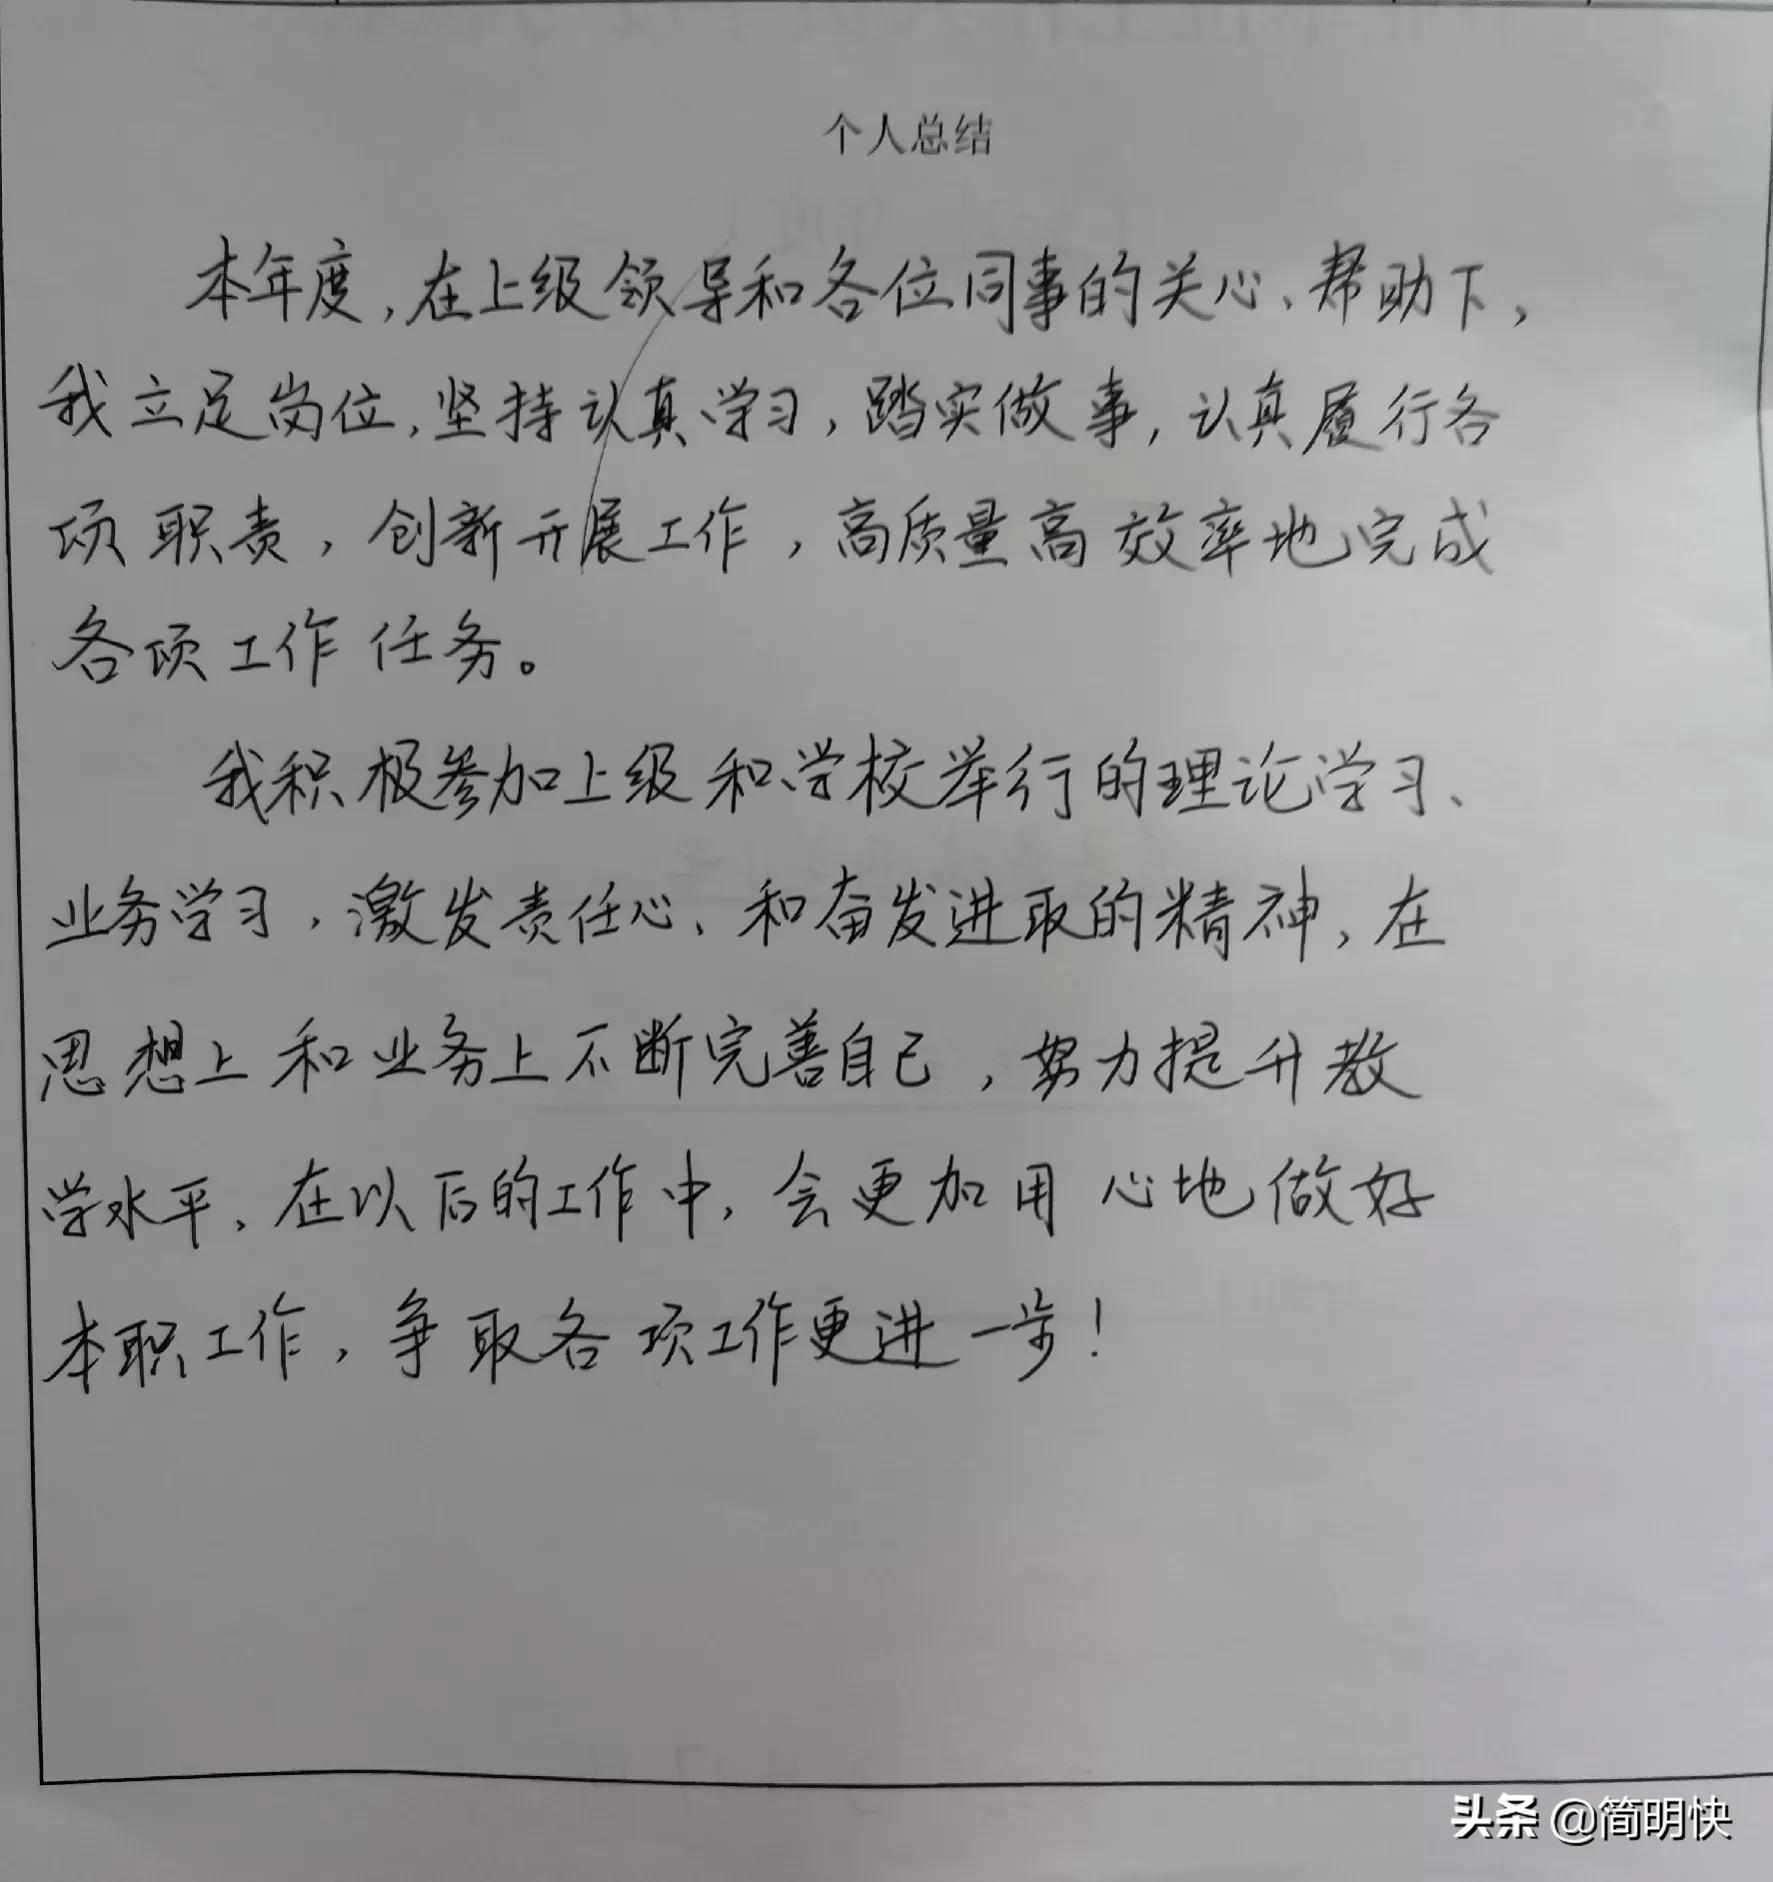 个人总结
本年度,在上级领导和各位同事的关心、帮助下,
我立足岗位,坚持认真学习,踏实做事,认真履行各
项职责,创新开展工作,高质量高效率地完成
各项工作任务。
我积极参加上级和学校举行的理论学习、
业务学习,激发责任心、和奋发进取的精神,在
思想上和业务上不断完善自己,努力提升教
学水平,在以后的工作中,会更加用心地做好
本职工作,争取各项工作更进一步!
头条 @简明快